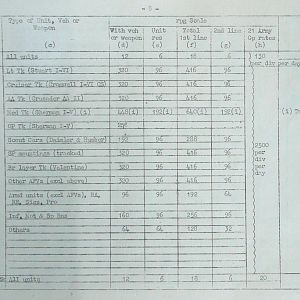 - 5 -
Type of Unit, Veh or Weapon
rpg Scale
With veh or weapon
Unit res
Total 1st line
2nd line
21 Army Gp rates
(c) (d) (e) (f) (g) (h)
All units 12 6 18 6 130
per div per day
Lt Tk (Stuart I-VI) 320 96 416 96
Cruiser Tk (Cromwell I-VI CS) 320 96 416 96
AA Tk (Crusader AA II) 320 96 416 96
Med Tk (Sherman I-V) (1) 448(1) 192(1) 640(1) 192(1)
OP Tk (Sherman I-V)
Scout Cars (Daimler & Humber) 192 96 288 96
SP mountings (tracked) 320 96 416 96
Br layer Tk (Valentine) 320 96 416 96
Other AFVs (excl above) 320 96 416 96
2500 per div per day
Armd units (excl AFVs), RA, RE, Sigs, Pro 96 96 192 64
Inf, Mot & Bn 160 96 256 96
Others 64 64 128 32
All units 12 6 18 6 20